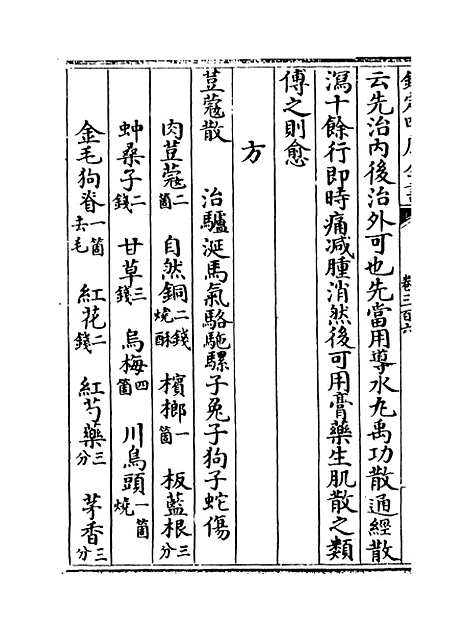 欽定四庫全書
卷三百六
云先治內後治外可也先當用導水丸禹功散通經散
瀉十餘行即時痛减腫消然後可用膏藥生肌散之類
傅之則愈
方
荳蔲散 治驢涎馬氣駱駞騾子兔子狗子蛇傷
肉荳蔲二箇 自然銅二錢燒酥 檳榔一箇 板藍根三分
虵桑子二錢 甘草三錢 烏梅四箇 川烏頭一箇燒
金毛狗脊一箇去毛 紅花二錢 紅芍藥三分 茅香三分